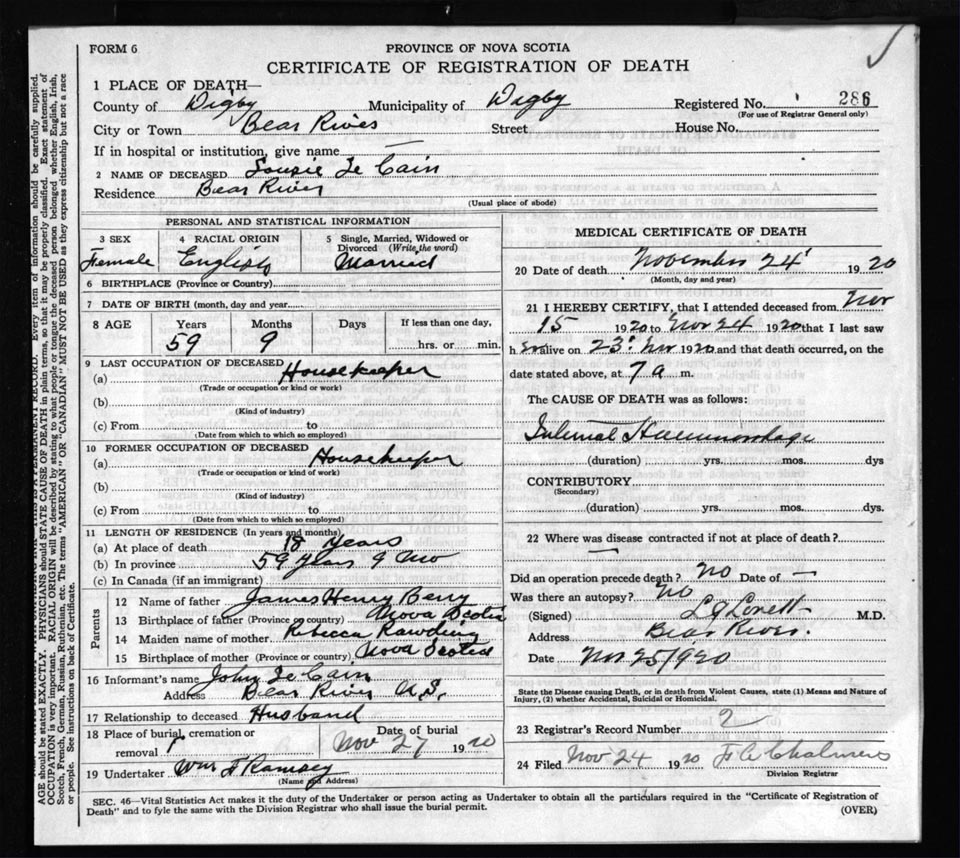 FORM 6
PROVINCE OF NOVA SCOTIA
CERTIFICATE OF REGISTRATION OF DEATH
1 PLACE OF DEATH—
County of Digby Municipality of Digby Registered No. 286
(For use of Registrar General only)
City or Town Bear River Street House No.
If in hospital or institution, give name —
2 NAME OF DECEASED Le Cain
Residence Bear River
(Usual place of abode)
PERSONAL AND STATISTICAL INFORMATION
3 SEX 4 RACIAL ORIGIN 5 Single, Married, Widowed or Divorced (Write the word)
Female English Married
6 BIRTHPLACE (Province or Country)
7 DATE OF BIRTH (month, day and year)
8 AGE Years Months Days If less than one day,
59 9 hrs. or min.
9 LAST OCCUPATION OF DECEASED
(a) Housekeeper
(Trade or occupation or kind or work)
(b)
(Kind of industry)
(c) From to
(Date from which to which so employed)
10 FORMER OCCUPATION OF DECEASED
(a) Housekeeper
(Trade or occupation or kind of work)
(b)
(Kind of industry)
(c) From to
(Date from which to which so employed)
11 LENGTH OF RESIDENCE (In years and months)
(a) At place of death 18 Years
(b) In province 59 Years 9 Mo
(c) In Canada (if an immigrant)
Parents
12 Name of father James Henry Berry
13 Birthplace of father (Province or country) Nova Scotia
14 Maiden name of mother Rebecca Rawding
15 Birthplace of mother (Province or country) Nova Scotia
16 Informant's name John Le Cain
Address Bear River N.S.
17 Relationship to deceased Husband
18 Place of burial, cremation or removal Date of burial
Nov 27 1920
19 Undertaker Wm F Ramsey
(Name and Address)
MEDICAL CERTIFICATE OF DEATH
20 Date of death November 24 1920
(Month, day and year)
21 I HEREBY CERTIFY, that I attended deceased from Nov
15 1920 to Nov 24 1920 that I last saw
h er alive on 23 Nov 1920 and that death occurred, on the
date stated above, at 7 a m.
The CAUSE OF DEATH was as follows:
Internal Haemmorhage
(duration) yrs. mos. dys
CONTRIBUTORY
(Secondary)
(duration) yrs. mos. dys.
22 Where was disease contracted if not at place of death?
—
Did an operation precede death? no Date of —
Was there an autopsy? no
(Signed) L J Lovett M.D.
Address Bear River.
Date Nov 25/1920
State the Disease causing Death, or in death from Violent Causes, state (1) Means and Nature of
Injury, (2) whether Accidental, Suicidal or Homicidal.
23 Registrar's Record Number 2
24 Filed Nov 24 1920 Chalmers
Division Registrar
SEC. 46—Vital Statistics Act makes it the duty of the Undertaker or person acting as Undertaker to obtain all the particulars required in the "Certificate of Registration of
Death" and to fyle the same with the Division Registrar who shall issue the burial permit.
(OVER)
AGE should be stated EXACTLY. PHYSICIANS should STATE CAUSE OF DEATH in plain terms, so that it may be properly classified. Exact statement of
OCCUPATION is very important. RACIAL ORIGIN will be described by stating to what people or tongue the deceased person belonged whether English, Irish,
Scotch, French, German, Russian, Ruthenian, etc. The terms "AMERICAN" OR "CANADIAN" MUST NOT BE USED as they express citizenship but not a race
or people. See instructions on back of Certificate.